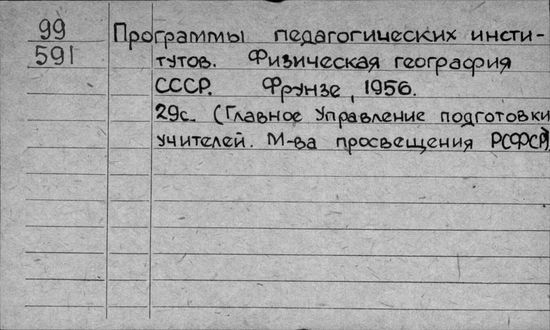 99 Программы педагогических инсти-
591 тутов. Физическая география
СССР. Фрунзе, 1956.
29с. (Главное Управление подготовки
учителей. М-ва просвещения РСФСР)